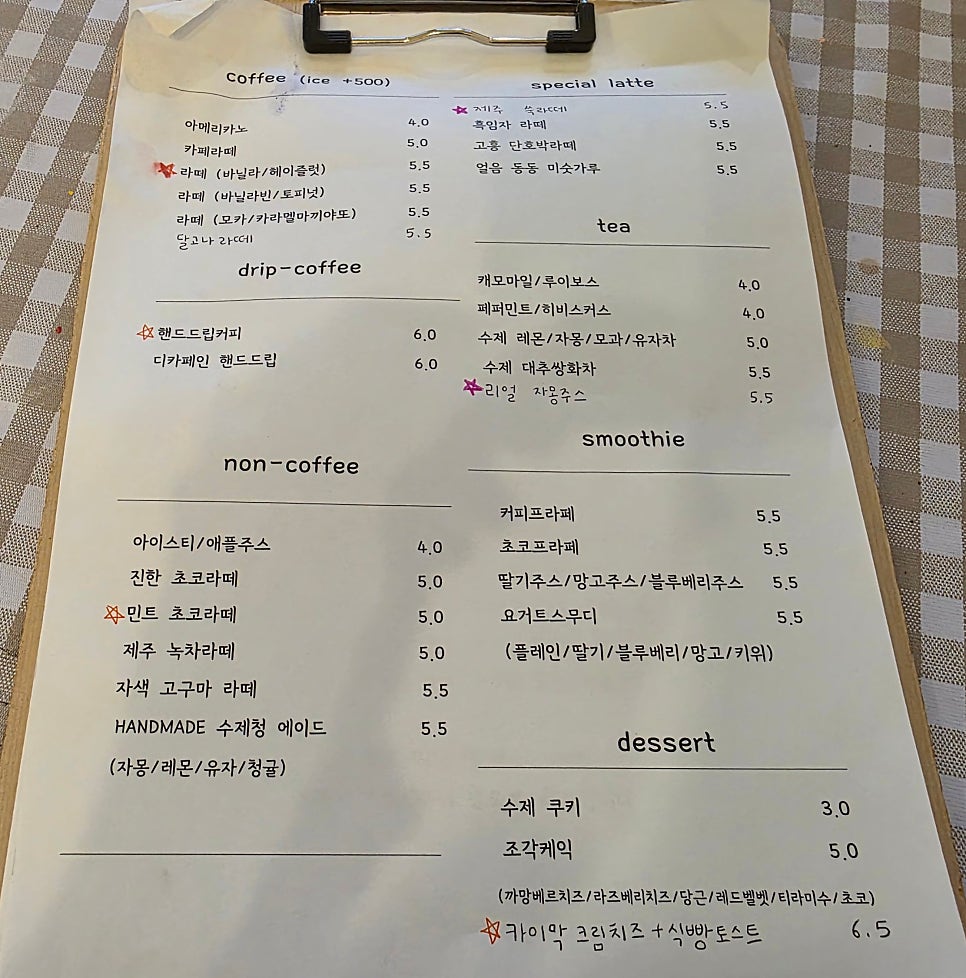 Coffee (ice +500)
아메리카노 4.0
카페라떼 5.0
라떼 (바닐라/헤이즐럿) 5.5
라떼 (바닐라빈/토피넛) 5.5
라떼 (모카/카라멜마끼야또) 5.5
달고나 라떼 5.5
drip-coffee
핸드드립커피 6.0
디카페인 핸드드립 6.0
non-coffee
아이스티/애플주스 4.0
진한 초코라떼 5.0
민트 초코라떼 5.0
제주 녹차라떼 5.0
자색 고구마 라떼 5.5
HANDMADE 수제청 에이드 5.5
(자몽/레몬/유자/청귤)
special latte
제주 쑥라떼 5.5
흑임자 라떼 5.5
고흥 단호박라떼 5.5
얼음 동동 미숫가루 5.5
tea
캐모마일/루이보스 4.0
페퍼민트/히비스커스 4.0
수제 레몬/자몽/모과/유자차 5.0
수제 대추쌍화차 5.5
리얼 자몽주스 5.5
smoothie
커피프라페 5.5
초코프라페 5.5
딸기주스/망고주스/블루베리주스 5.5
요거트스무디 5.5
(플레인/딸기/블루베리/망고/키위)
dessert
수제 쿠키 3.0
조각케익 5.0
(까망베르치즈/라즈베리치즈/당근/레드벨벳/티라미수/초코)
카이막 크림치즈 + 식빵토스트 6.5